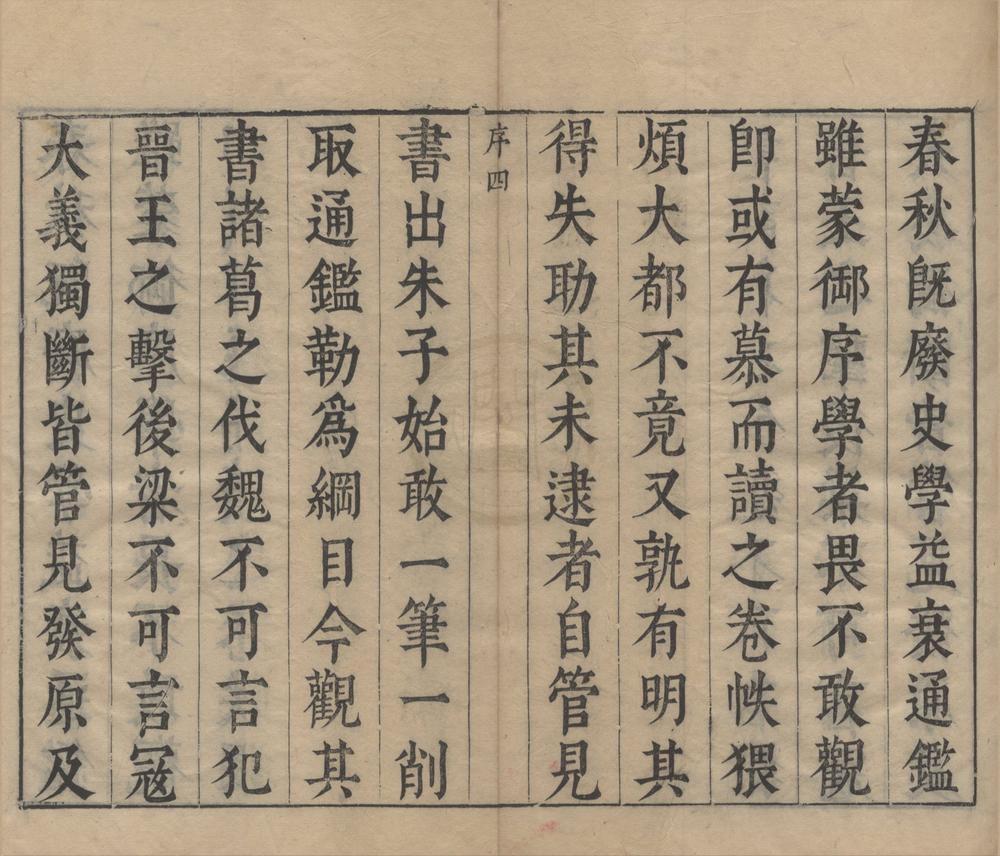 春秋旣廢史學益衰通鑑
雖蒙御序學者畏不敢觀
卽或有慕而讀之卷帙猥
煩大都不竟又孰有明其
得失助其未逮者自管見
序四
書出朱子始敢一筆一削
取通鑑勒爲綱目今觀其
書諸葛之伐魏不可言犯
晉王之擊後梁不可言寇
大義獨斷皆管見發原及